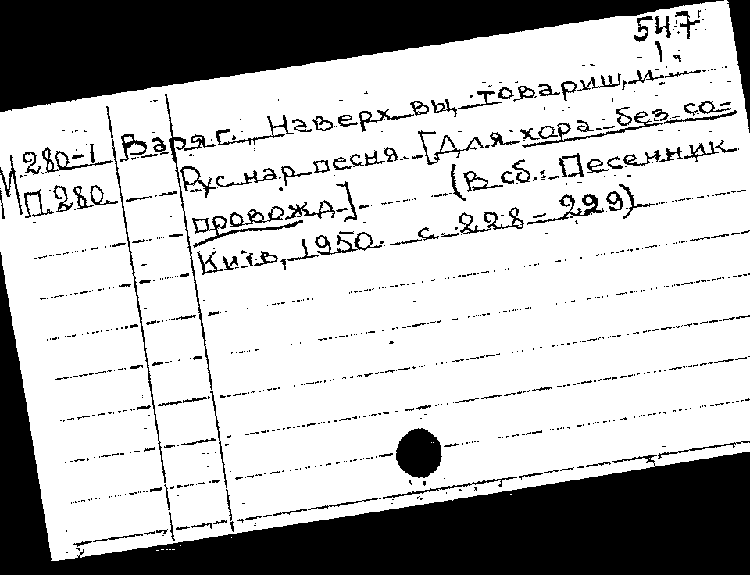 547
1.
М 280-1 Варяг. Наверх вы, товарищи.
П.280. Рус. нар. песня. [Для хора без со-
провожд.]. (В сб.: Песенник
Київ, 1950. с. 228-229).